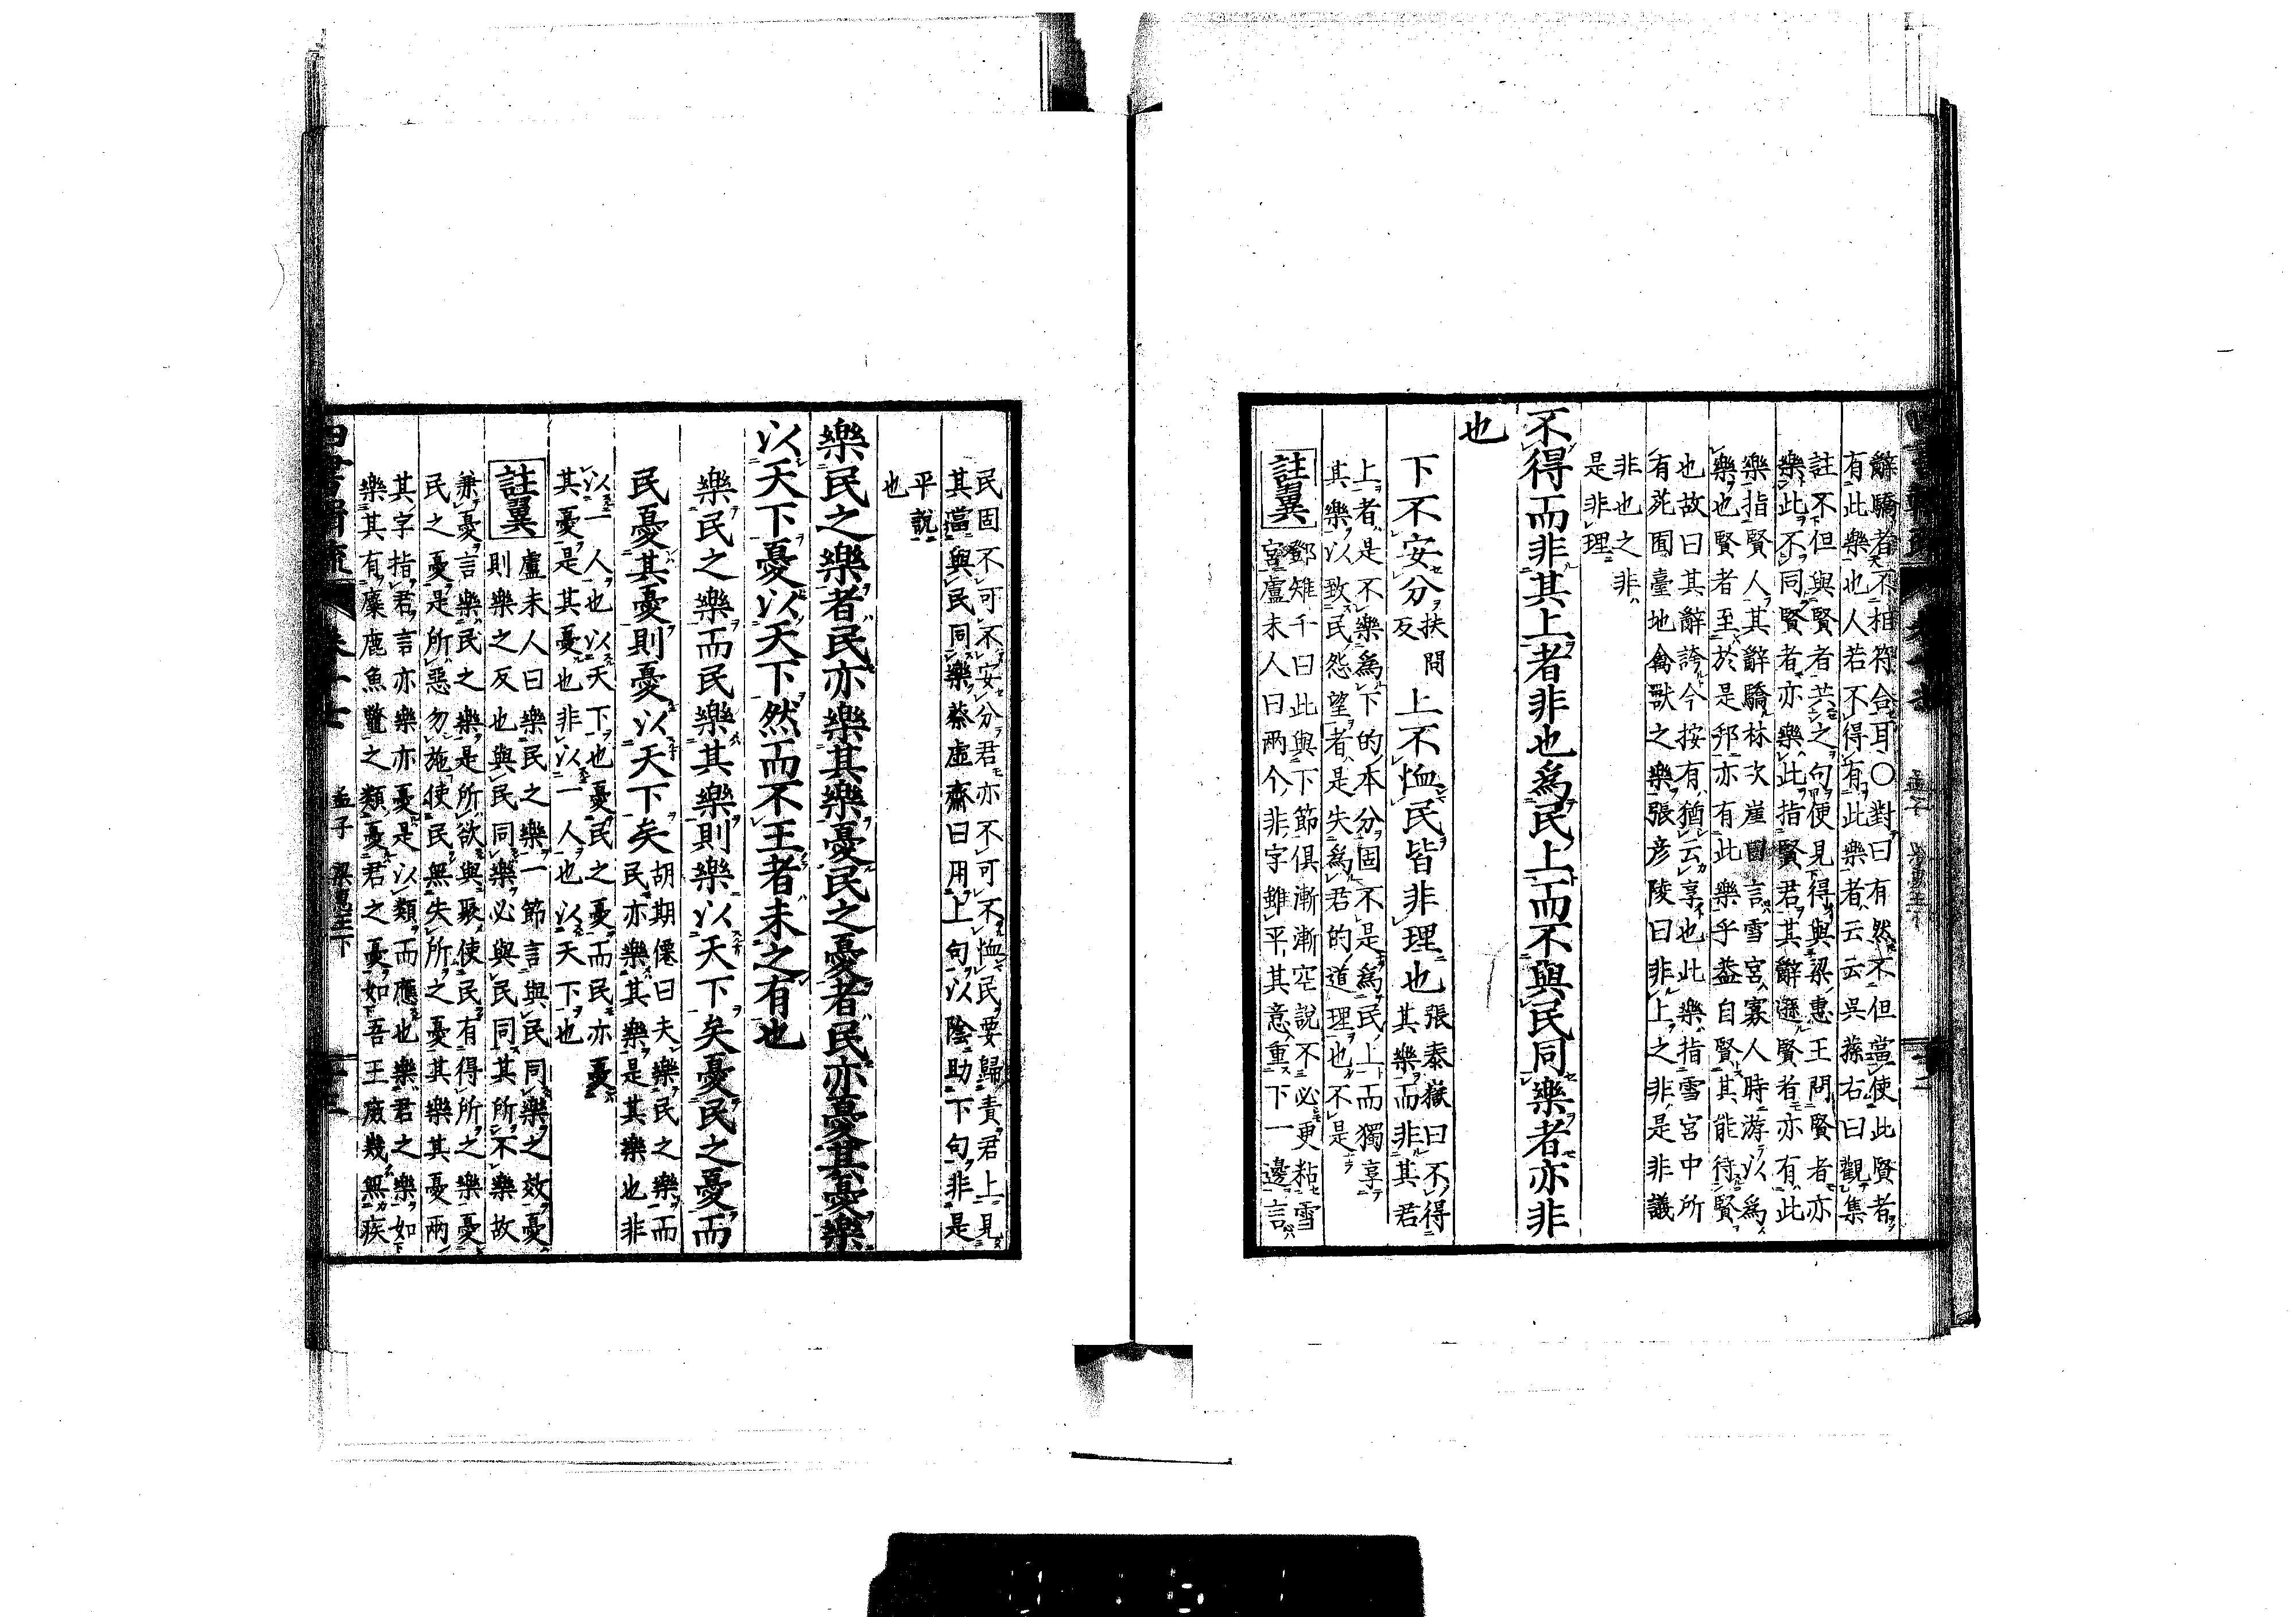 辭驕者不相符合耳〇對曰有然不但當使此賢者
有此樂也人若不得有此樂者云云吳蓀右曰觀集
註不但與賢者共之句便見得與梁惠王問賢者亦
樂此不同賢者亦樂此指賢君其辭遜賢者亦有此
樂指賢人其辭驕林次崖圖言雪宮寡人時游以爲
樂也賢者至於是邦亦有此樂乎蓋自賢其能待賢
也故曰其辭誇今按有猶云享也此樂指雪宮中所
有苑囿臺地禽獸之樂張彦陵曰非上之非是非議
非也之非
是非理
不得而非其上者非也爲民上而不與民同樂者亦非
也
下不安分扶問反上不恤民皆非理也張泰嶽曰不得
其樂而非其君
上者是不樂爲下的本分固不是爲民上而獨享
其樂以致民怨望者是失爲君的道理也不是
註翼
鄧雉千曰此與下節俱漸漸空說不必更粘雪
宮盧未人曰兩个非字雖平其意重下一邊言
民固不可不安分君亦不可不恤民要歸責君上見
其當與民同樂蔡虛齋曰用上句以陰助下句非是
平說
也
樂民之樂者民亦樂其樂憂民之憂者民亦憂其憂樂
以天下憂以天下然而不王者未之有也
樂民之樂而民樂其樂則樂以天下矣憂民之憂而
民憂其憂則憂以天下矣胡期僊曰夫樂民之樂而
民亦樂其樂是其樂也非
以一人也以天下也憂民之憂而民亦憂
其憂是其憂也非以一人也以天下也
註翼
盧未人曰樂民之樂一節言與民同樂之效憂
則樂之反也與民同樂必與民同其所不樂故
兼憂言樂民之樂是所欲與聚使民有得所之樂憂
民之憂是所惡勿施使民無失所之憂其樂其憂兩
其字指君言亦樂亦憂是以類而應也樂君之樂如
樂其有麋鹿魚鼈之類憂君之憂如吾王庶幾無疾
孟子 梁惠王下